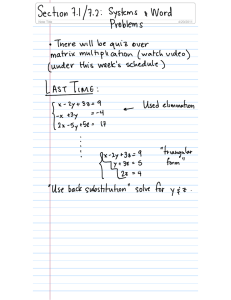 Section 7.1/7.2: Systems & Word
Problems
• There will be quiz over
matrix multiplication (watch video)
(under this week's schedule)
LAST TIME:
x - 2y + 3z = 9
-x + 3y = -4
2x - 5y + 5z = 17
← Used elimination
x - 2y + 3z = 9
y + 3z = 5
2z = 4
"triangular
form"
"Use back substitution" solve for y & z.